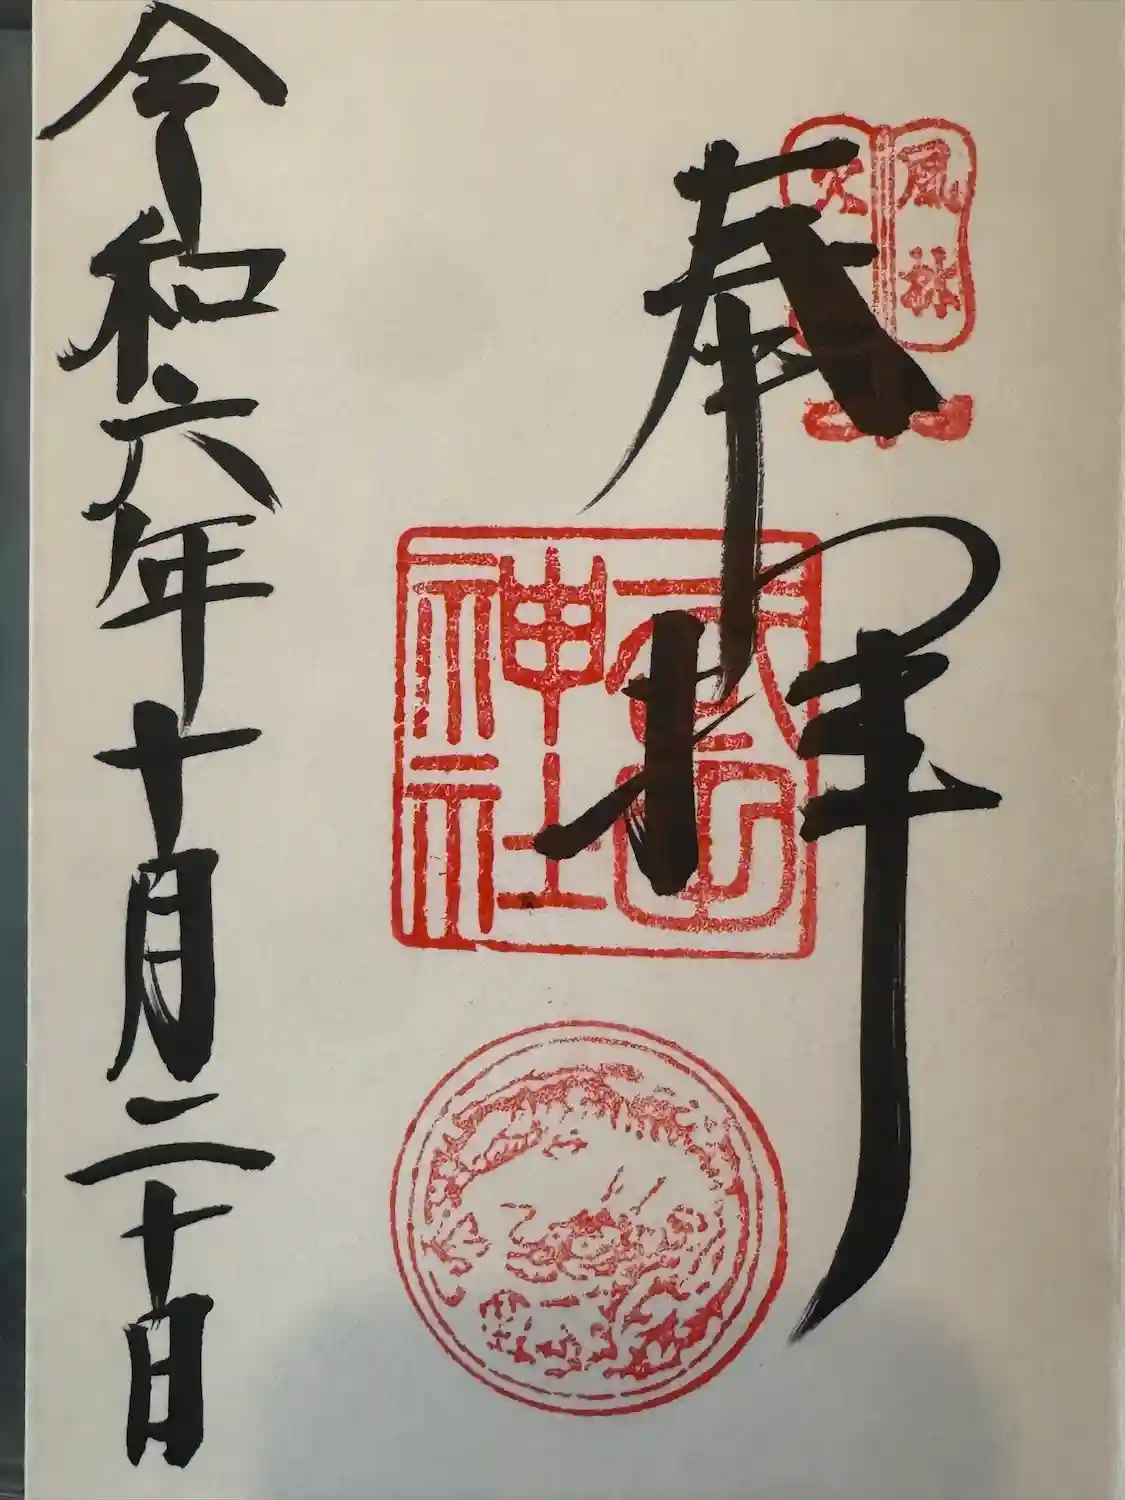 風林
火
奉拝
武田
神社
令和六年十月二十日